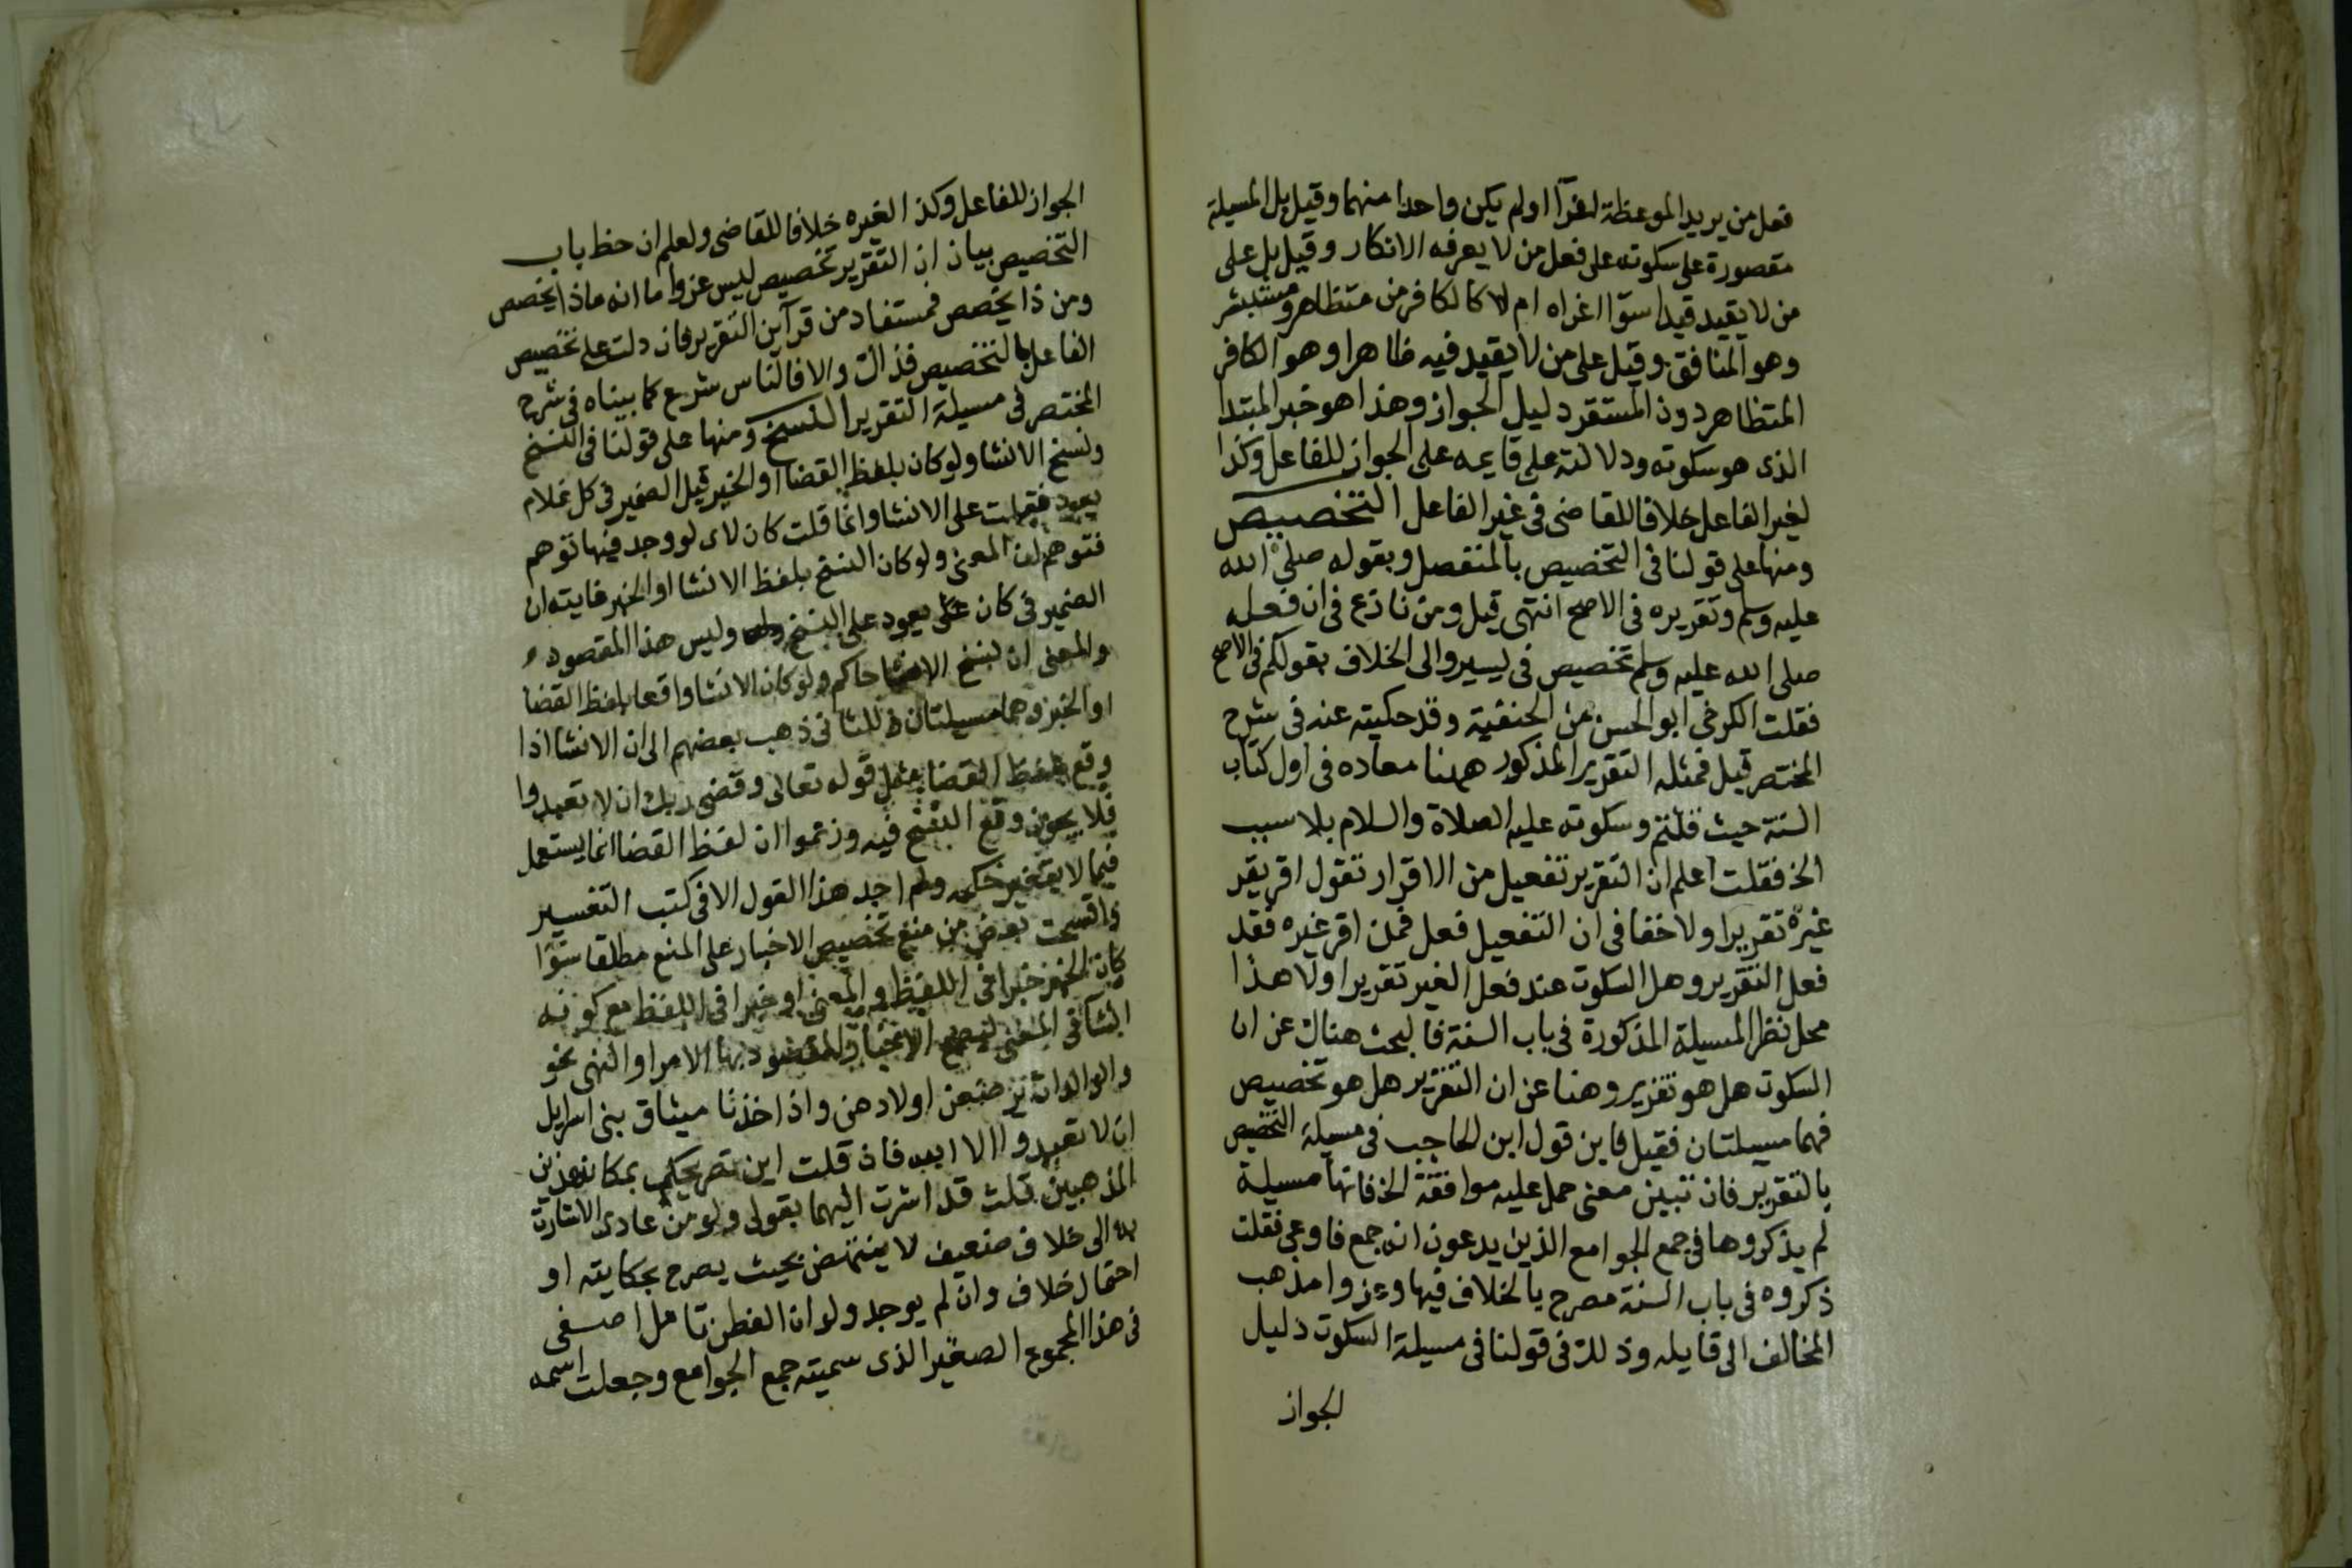 فعل من يريد الموعظة لفرآا اولم يكن واحدا منهما وقيل بل المسيلة
مقصورة على سكوته على فعل من لا يعرفه الانكار وقيل بل على
من لا يقيد قيدا سوّا اغراه ام لا كالكافر من متظاهر ومستبشر
وهو المنافق وقيل على من لا يقيد فيه ظاهرا وهو الكافر
المتظاهر دون المستقر دليل الجواز وهذا هو خبر المبتدا
الذى هو سكوته ودلالته على قايمه على الجواز للفاعل وكذا
لغير الفاعل خلافا للقاضى فى غير الفاعل التخصيص
ومنها على قولنا فى التخصيص بالمنفصل وبقوله صلى الله
عليه وسلم وتقريره فى الاصح انتهى قيل ومن نازع فى ان فعله
صلى الله عليه وسلم تخصيص فى ليسيروا الى الخلاف بقولكم فى الاصح
فقلت الكرخى ابو الحسن من الحنفية وقد حكيته عنه فى شرح
المختصر قيل فمثله التقرير المذكور ههنا معاده فى اول كتاب
السنة حيث قلتم وسكوته عليه الصلاة والسلام بلا سبب
الخ فقلت اعلم ان التقرير تفعيل من الاقرار تقول اقر يقر
غيره تقريرا ولا خفا فى ان التفعيل فعل فمن اقر غيره فقد
فعل التقرير وهل السكوت عند فعل الغير تقريرا ولا هذا
محل نظر المسيلة المذكورة فى باب السنة فالبحث هناك عن ان
السكوت هل هو تقرير وهنا عن ان التقرير هل هو تخصيص
فهما مسيلتان فقيل فاين قول ابن الحاجب فى مسيلة التخصيص
بالتقرير فان تبين معنى حمل عليه موافقة الخ فانها مسيلة
لم يذكروها فى جمع الجوامع الذين يدعون انه جمع فاوعى فقلت
ذكروه فى باب السنة مصرح بالخلاف فيها وعزوا مذهب
المخالف الى قايله وذلك فى قولنا فى مسيلة السكوت دليل
الجواز
الجواز للفاعل وكذا لغيره خلافا للقاضى ولعلم ان حظ باب
التخصيص بيان ان التقرير تخصيص ليس عزوا ما انه ماذا يخصص
ومن ذا يخصص فمستفاد من قرآين التقرير فان دلت على تخصيص
الفاعل بالتخصيص فذاك والا فالناس شرع كما بيناه فى شرح
المختصر فى مسيلة التقرير النسخ ومنها على قولنا فى النسخ
ونسخ الانشا ولو كان بلفظ القضا او الخبر قيل الضمير فى كل غلام
يعود فقلت على الانشا وانما قلت كان لاى لو وجد فيها توهم
فتوهم ان المعنى ولو كان النسخ بلفظ الانشا او الخبر غايته ان
الضمير فى كان يعود على النسخ وليس هذا المقصود
والمعنى ان نسخ الانشا حاكم ولو كان الانشا واقعا بلفظ القضا
او الخبر وهما مسيلتان ذهب بعضهم الى ان الانشا اذا
وقع بلفظ القضا مثل قوله تعالى وقضى ربك ان لا تعبدوا
فلا يجوز وقع النسخ فيه وزعموا ان لفظ القضا انما يستعمل
فيما لا يتغير حكمه ولم اجد هذا القول الا فى كتب التفسير
بعض من منع تخصيص الاخبار على المنع مطلقا سوّا
كان الخبر خبرا فى اللفظ والمعنى او خبرا فى اللفظ مع كونه
انشا فى المعنى والمقصود بها الامر او النهى نحو
والوالدات يرضعن اولادهن واذ اخذنا ميثاق بنى اسرايل
ان لا تعبدوا الا الله فان قلت اين تصريحكم بمكان هذين
المذهبين قلت قد اشرت اليهما بقولى ولو ومن عادى الاشارة
به الى خلاف ضعيف لا ينتهض بحيث يصرح بحكايته او
احتمال خلاف وان لم يوجد ولو ان الفطن تامل اصفى
فى هذا المجموع الصغير الذى سميته جمع الجوامع وجعلت اسمه